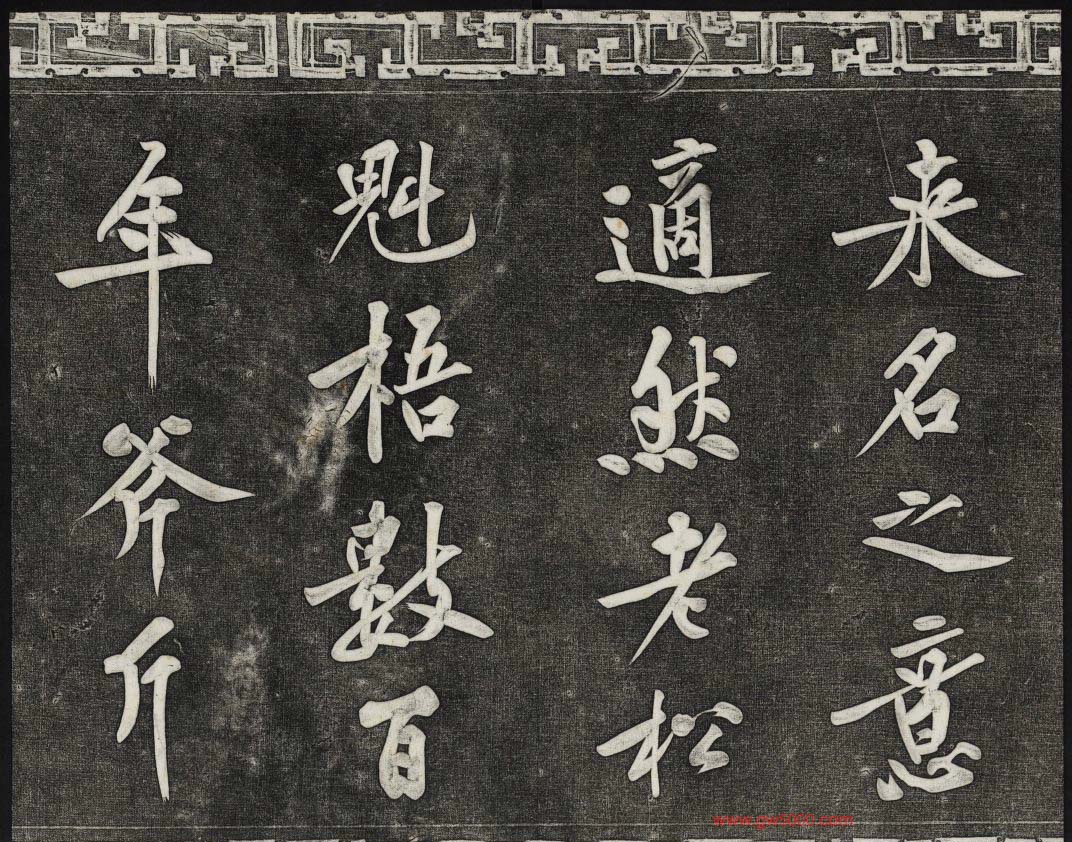 来名之意
適然老松
魁梧數百
年斧斤
www.gw5000.com